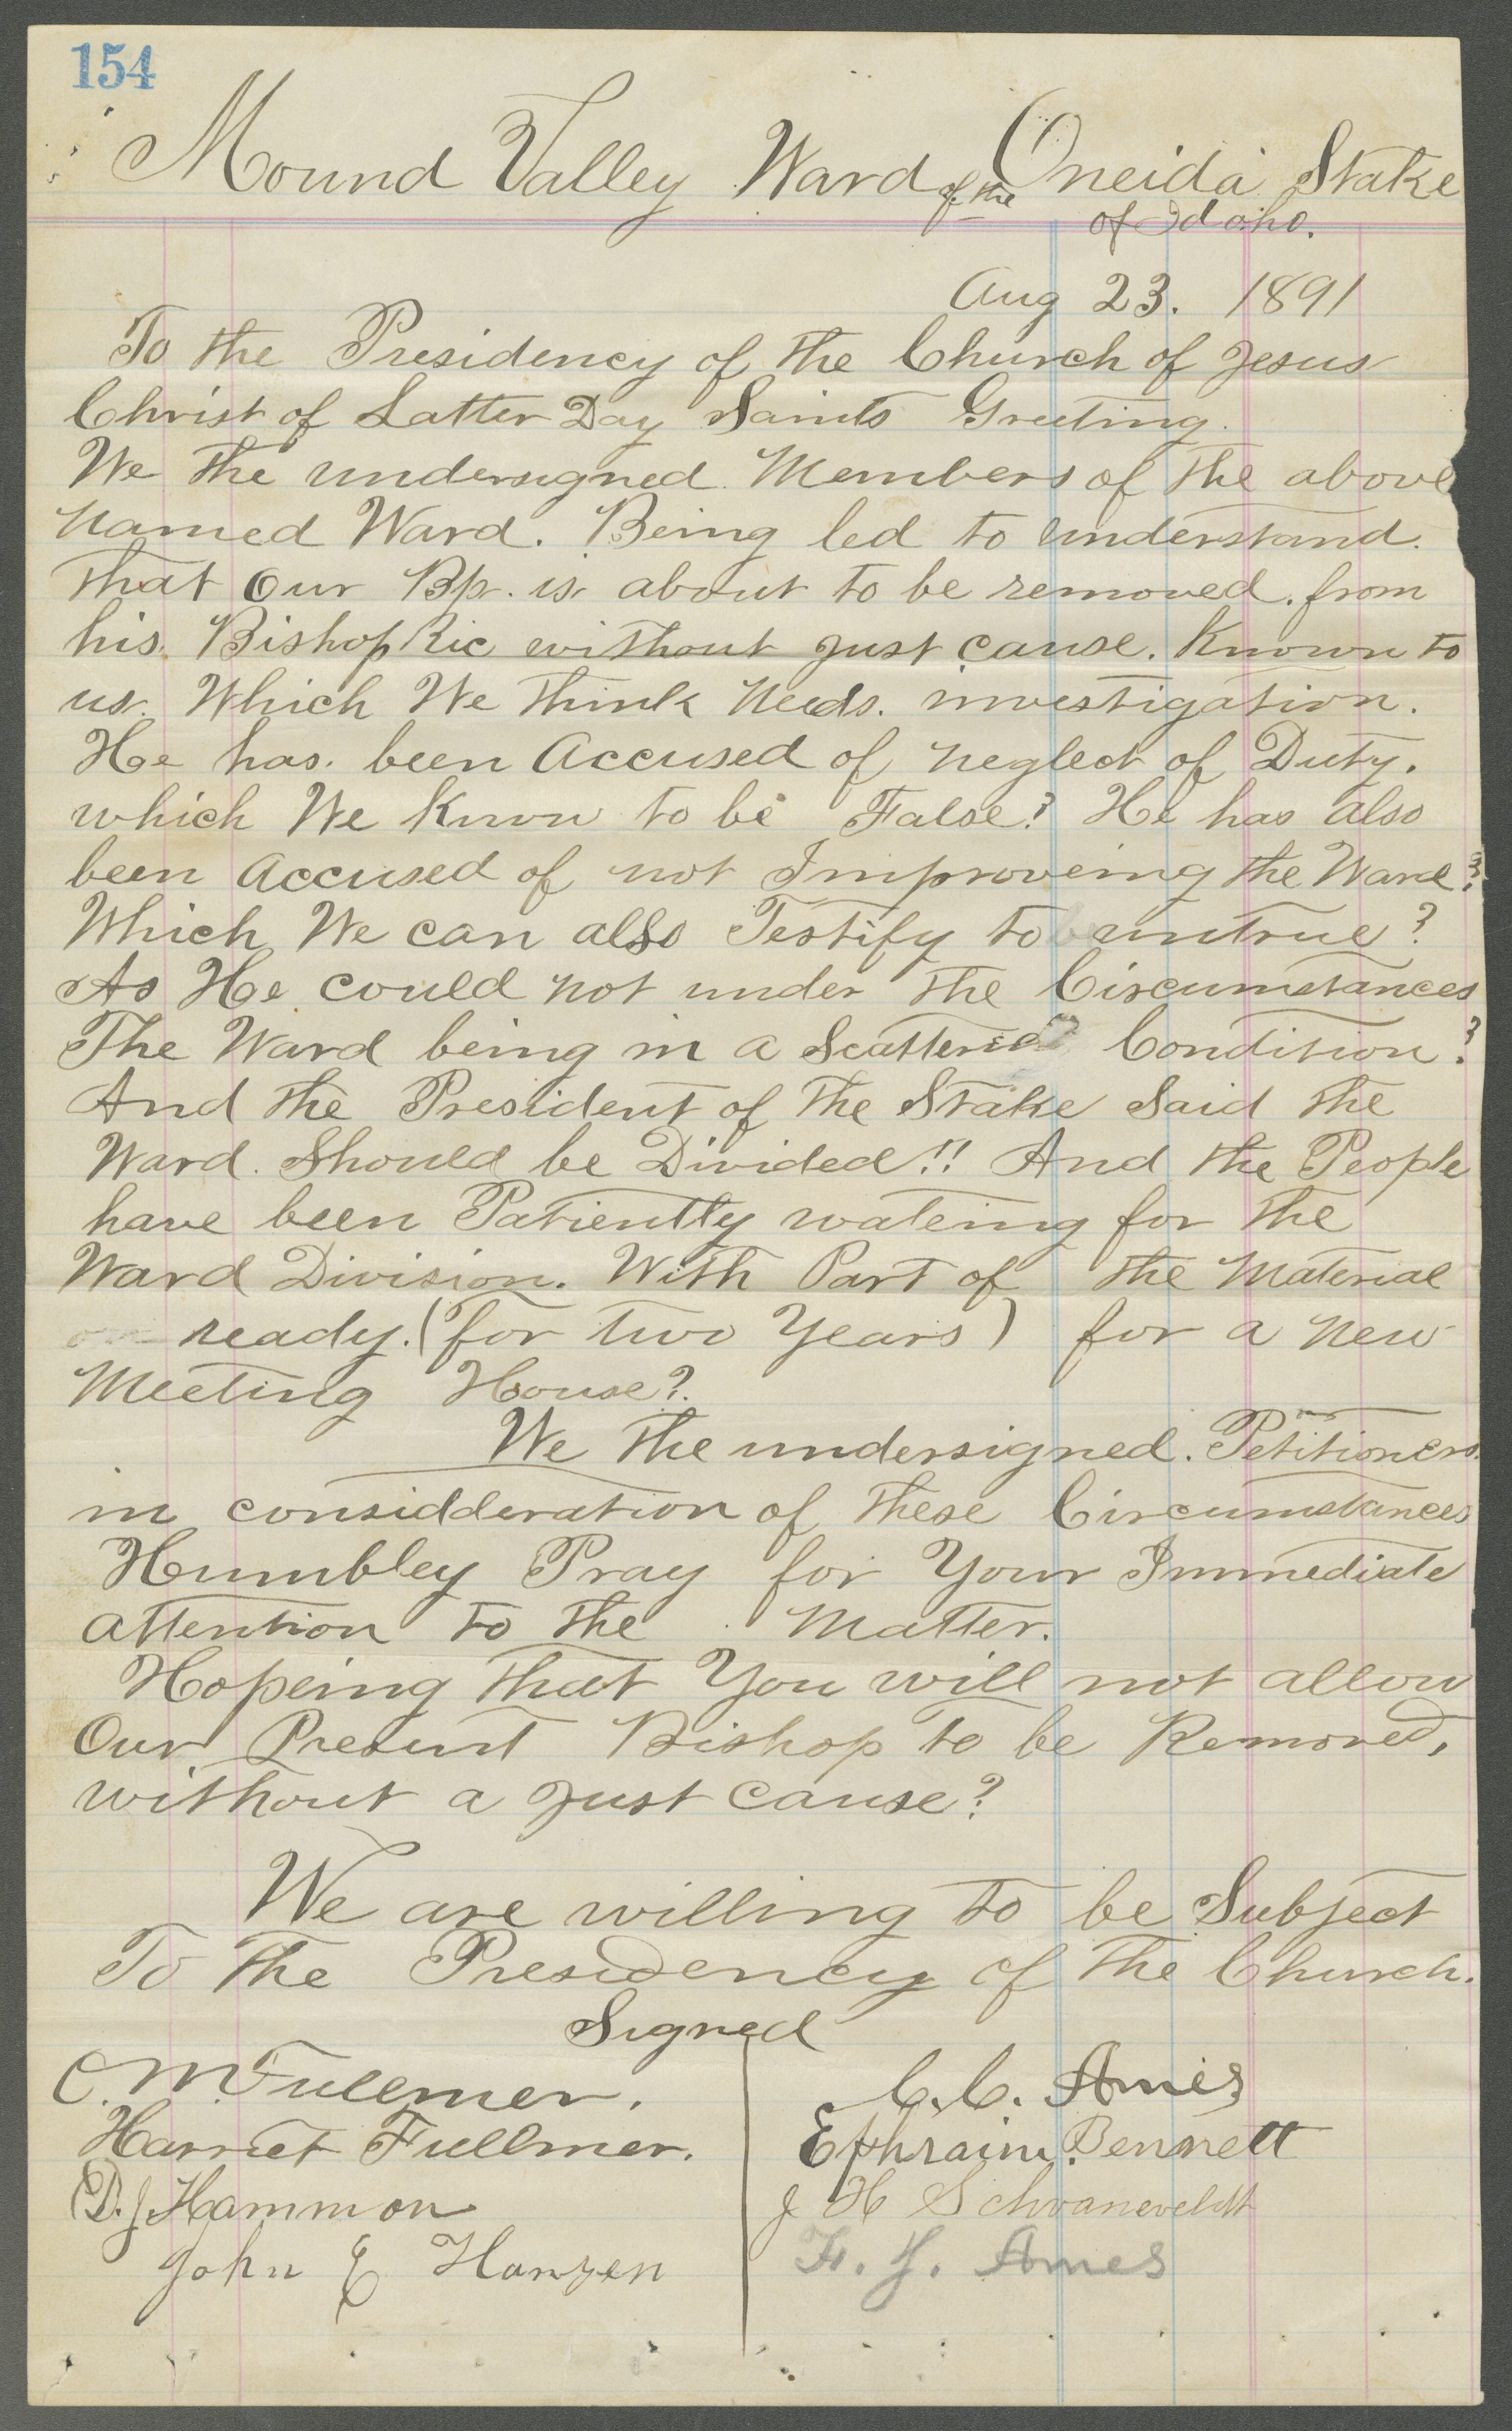 154
Mound Valley Ward of the Oneida Stake
of Idaho.
Aug 23. 1891
To the Presidency of the Church of Jesus
Christ of Latter Day Saints Greeting.
We the undersigned Members of the above
named Ward. Being led to understand.
that our Bp. is about to be removed. from
his. BishopRic without just cause. Known to
us. Which We think needs. investigation.
He has. been Accused of neglect of Duty.
which We Know to be False? He has also
been Accused of not Improveing the Ward?
Which We can also Testify to untrue?
As He could not under the Circumstances
The Ward being in a Scattered Condition?
And the President of the Stake Said the
Ward. Should be Divided!! And the People
have been Patiently wateing for the
Ward Division. With Part of the Material
ready. (for two Years) for a new
Meeting House?
We the undersigned. Petitioners.
in considderation of these Circumstances
Humbley Pray for Your Immediate
attention to the Matter.
Hopeing that You will not allow
Our Present Bishop to be Removed,
without a just cause?
We are willing to be Subject
To the Presidency of the Church.
Signed
C. M Fullmer. C. C. Ames
Harriet Fullmer. Ephraim Bennett
D. J Hammon J H Schvaneveldt
John E Hansen F. J. Ames